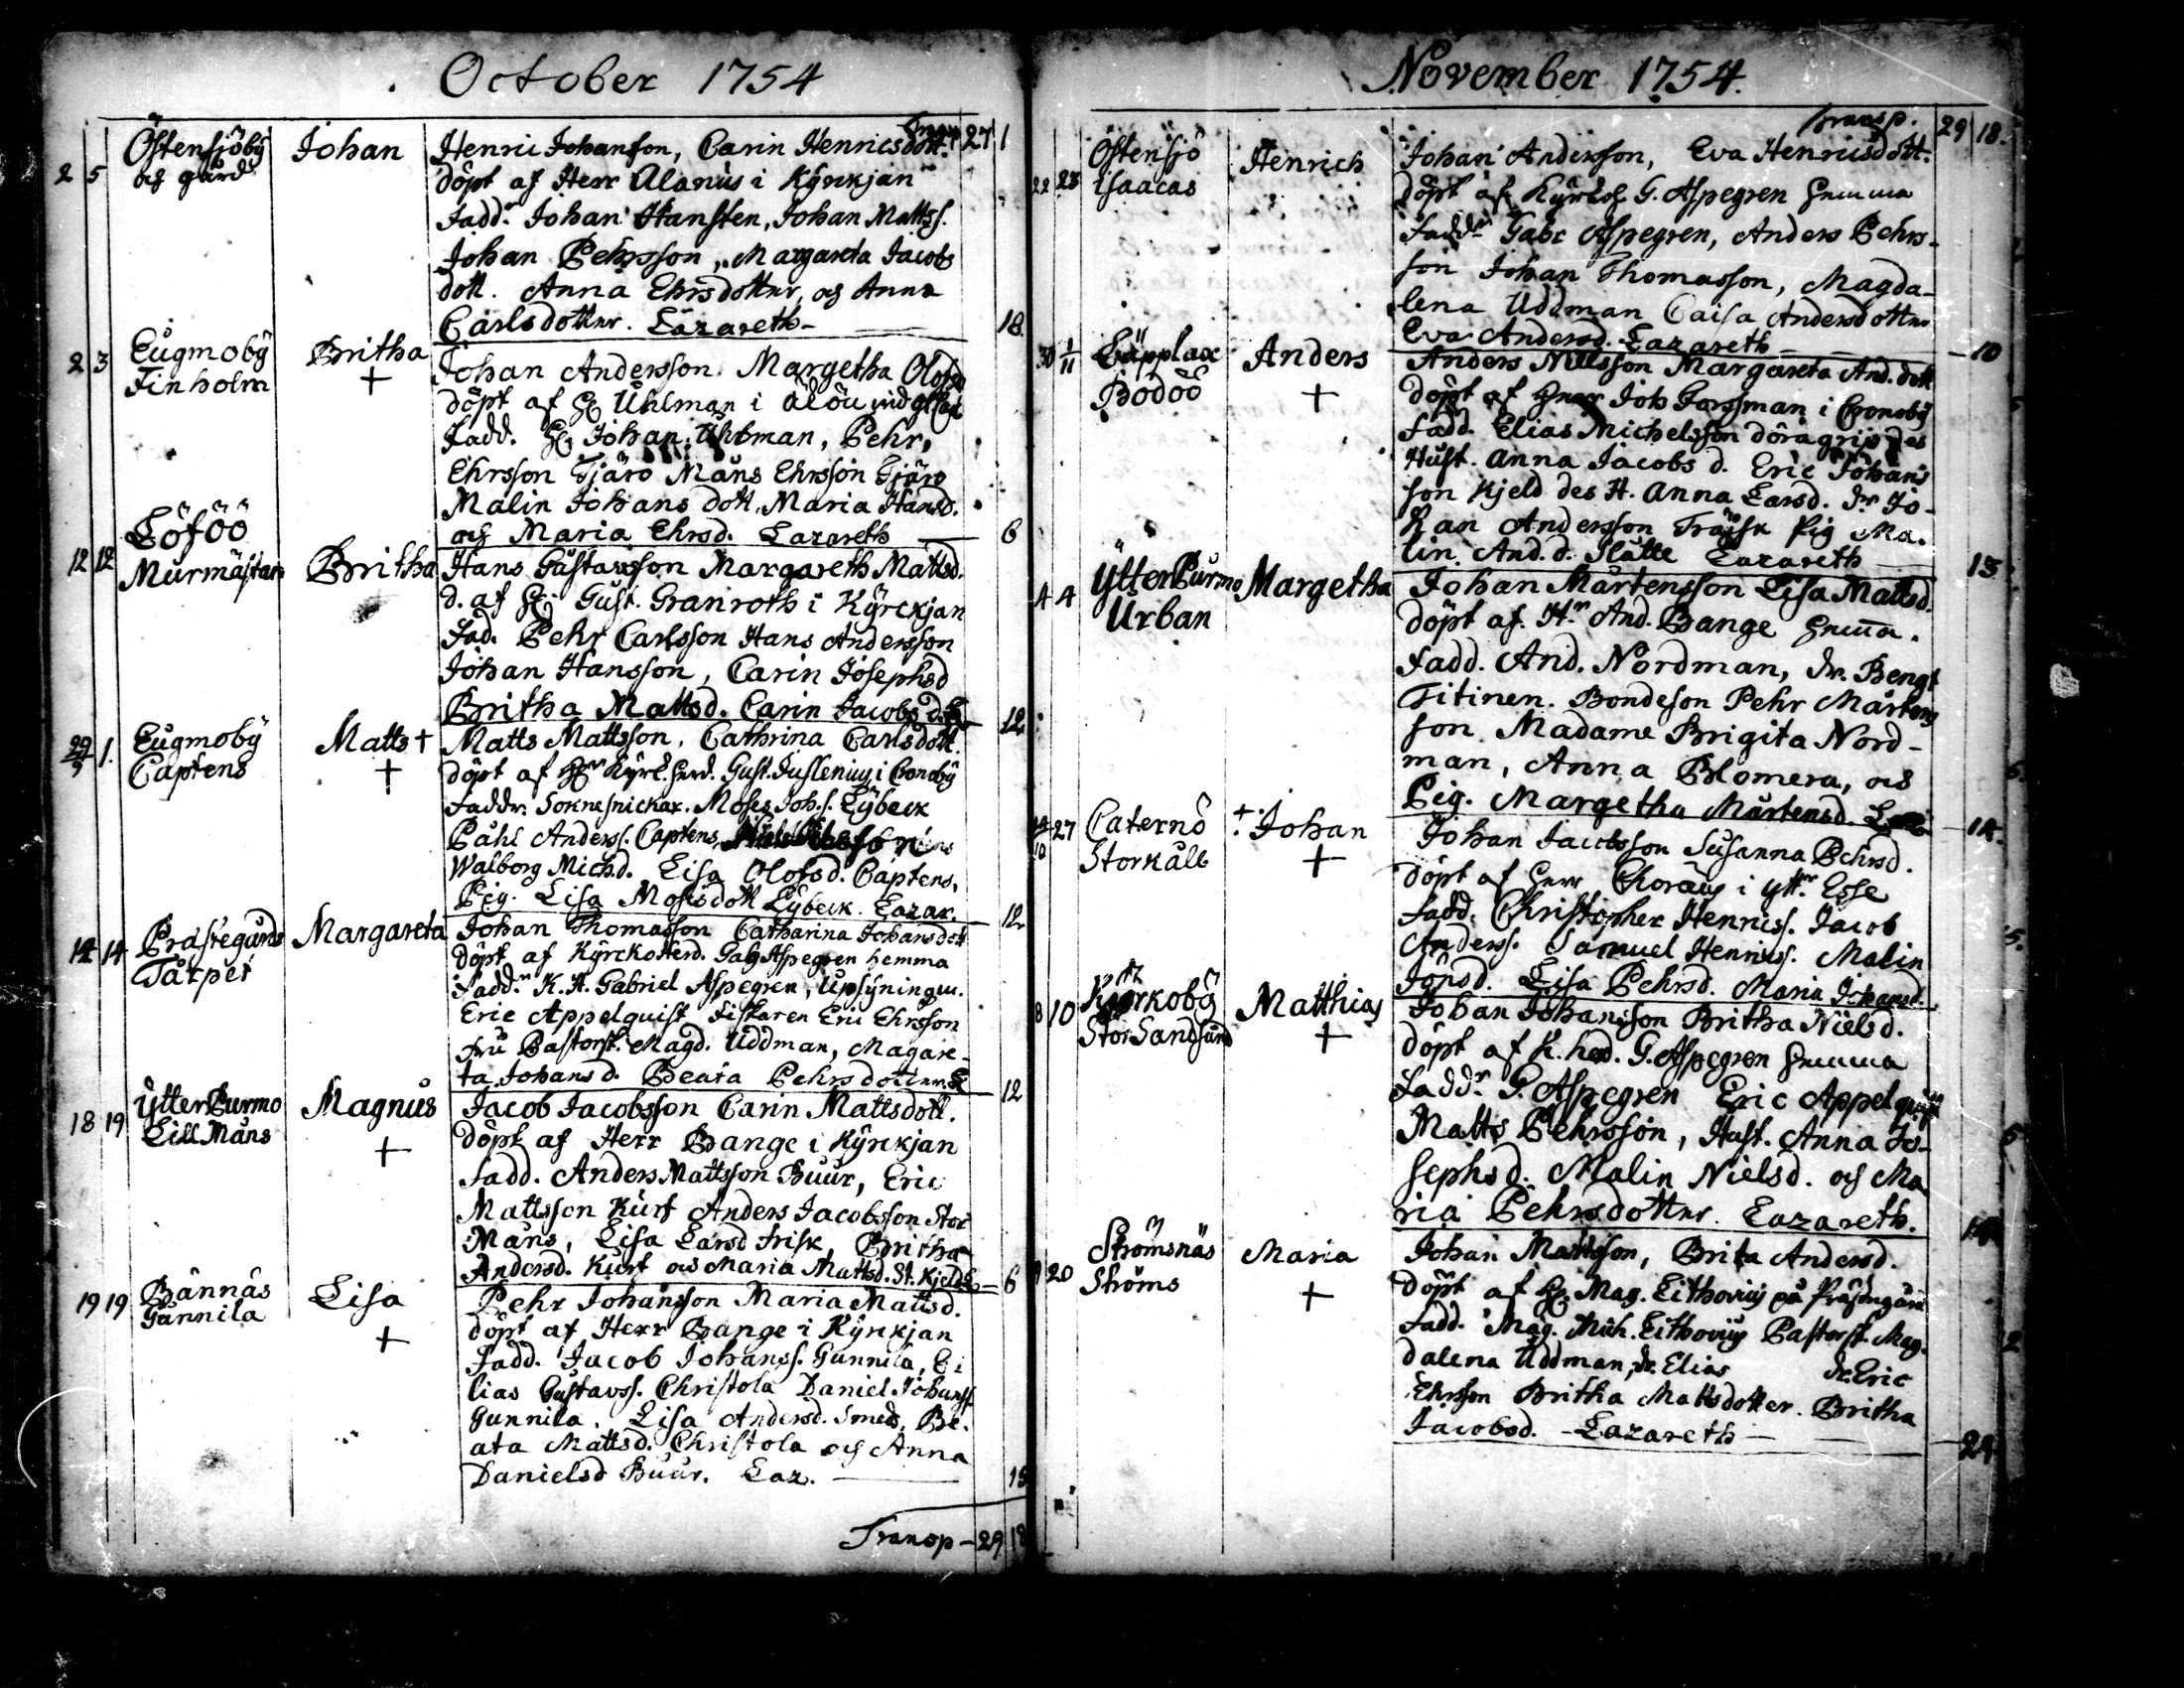 October 1754
Transp 27 1
2 5 Östensjöby Johan Henric Johansson, Carin Henricsdott.
af gård döpt af Herr Alanus i Kyrckjan
Fadd. Johan Hansten, Johan Mattss.
Johan Pehrsson, Margareta Jacobs
dott. Anna Ehrsdotter, och Anna
Carlsdotter. Lazareth 18
2 3 Lugmoby Britha Johan Andersson. Margetha Olofsd
Finholm + döpt af H. Uhlman i
Fadd. H. Johan Uhlman, Pehr
Ehrsson Tjäro Måns Ehrsson Tjäro
Malin Johans dott. Maria Hansd.
och Maria Ehrsd. Lazareth 6
Löföö
12 12 Murmästars Britha Hans Gustavsson Margareth Mattsd.
d. af H. Gust. Granroth i Kyrckjan
Fad. Pehr Carlsson Hans Andersson
Johan Hansson, Carin Josephsd
Britha Mattsd. Carin Jacobsd. L 12
29/9 1. Lugmoby Matts + Matts Mattsson, Cathrina Carlsdott.
Captens + döpt af Hr Kyrk.herd. Gust. Juslenius i Cronoby
Faddr. Soknesnickar. Moses Joh.s. Lybeck
Påhl Anderss. Captens,
Walborg Michd. Lisa Olofsd. Captens,
Pig. Lisa Mosisdott Lybeck. Lazar. 12
14 14 Prästegårds Margareta Johan Thomasson Catharina Johansdott
Tårpet döpt af Kyrckoherd. Gab Aspegren hemma
Fadd. K. H. Gabriel Aspegren, Upsyningsm.
Eric Appelquist Fiskaren Eric Ehrsson
Fru Pastorsk. Magd. Uddman, Magare-
ta Johansd. Beata Pehrsdotter. L 12
18 19 Ytter Purmo Magnus Jacob Jacobsson Carin Mattsdott.
Lill Måns + döpt af Herr Bange i Kyrckjan
Fadd. Anders Mattsson Buur, Eric
Mattsson Kurf Anders Jacobsson Stor
Måns, Lisa Larsd Frisk, Britha
Andersd. Kurf och Maria Mattsd. St. Kjeld L 6
19 19 Bännäs Lisa Pehr Johansson Maria Mattsd.
Gunnila + döpt af Herr Bange i Kyrckjan
Fadd. Jacob Johanss. Gunnila, E
lias Gustavss. Christola Daniel Johanss.
Gunnila. Lisa Andersd. Smeds, Be-
ata Mattsd. Christola och Anna
Danielsd Buur. Laz. 15
Transp - 29 18
November 1754.
Transp. 29 18.
22 23 Östensjö Henrich Johan Andersson, Eva Henricsdott.
Isaacas döpt af Kyrckoh. G. Aspegren hemma
Faddr Gabr Aspegren, Anders Pehrs-
son Johan Thomasson, Magda-
lena Uddman Caisa Andersdotter
Eva Andersd. Lazareth 10
30 1/11 Läpplax Anders Anders Nillsson Margareta And. dott
Bodöö + döpt af Herr Joh Forssman i Cronoby
Fadd. Elias Michelsson Döragrip des
Hust. Anna Jacobs d. Eric Johans
son Kjeld des H. Anna Larsd. Dr. Jo-
han Andersson Träisk Pig Ma-
lin And. d. Slätte Lazareth 13
4 4 Ytter Purmo Margetha Johan Mårtensson Lisa Mattsd.
Urban döpt af Hr. And. Bange hemma.
Fadd. And. Nordman, Dr. Bengt
Titinen. Bondeson Pehr Mårtens
son. Madame Brigita Nord-
man, Anna Blomera, och
Pig. Margetha Mårtensd. L 14.
19/10 27 Caternö + Johan Johan Jacobsson Susanna Pehrsd.
Storkålb + döpt af Herr Choræus i ytt. Esse
Fadd. Christopher Henricss. Jacob
Anderss. Samuel Henricss. Malin
Jönsd. Lisa Pehrsd. Maria Johansd.
8 10 Korkoby Matthias Johan Johansson Britha Nielsd.
Stor Sandsund + döpt af K. herd. G. Aspegren hemma
Faddr G. Aspegren Eric Appelquist
Matts Pehrsson, Hust. Anna Jo-
sephsd. Malin Nielsd. och Ma
ria Pehrsdotter. Lazareth.
20 Strömsnäs Maria Johan Mattsson, Brita Andersd.
Ströms + döpt af H. Mag. Lithovius på Prästgård
Fadd. Mag. Mich. Lithovius Pastorsk. Mag-
dalena Uddman, Dr. Elias Dr. Eric
Ehrsson Britha Mattsdotter. Britha
Jacobsd. - Lazareth 24